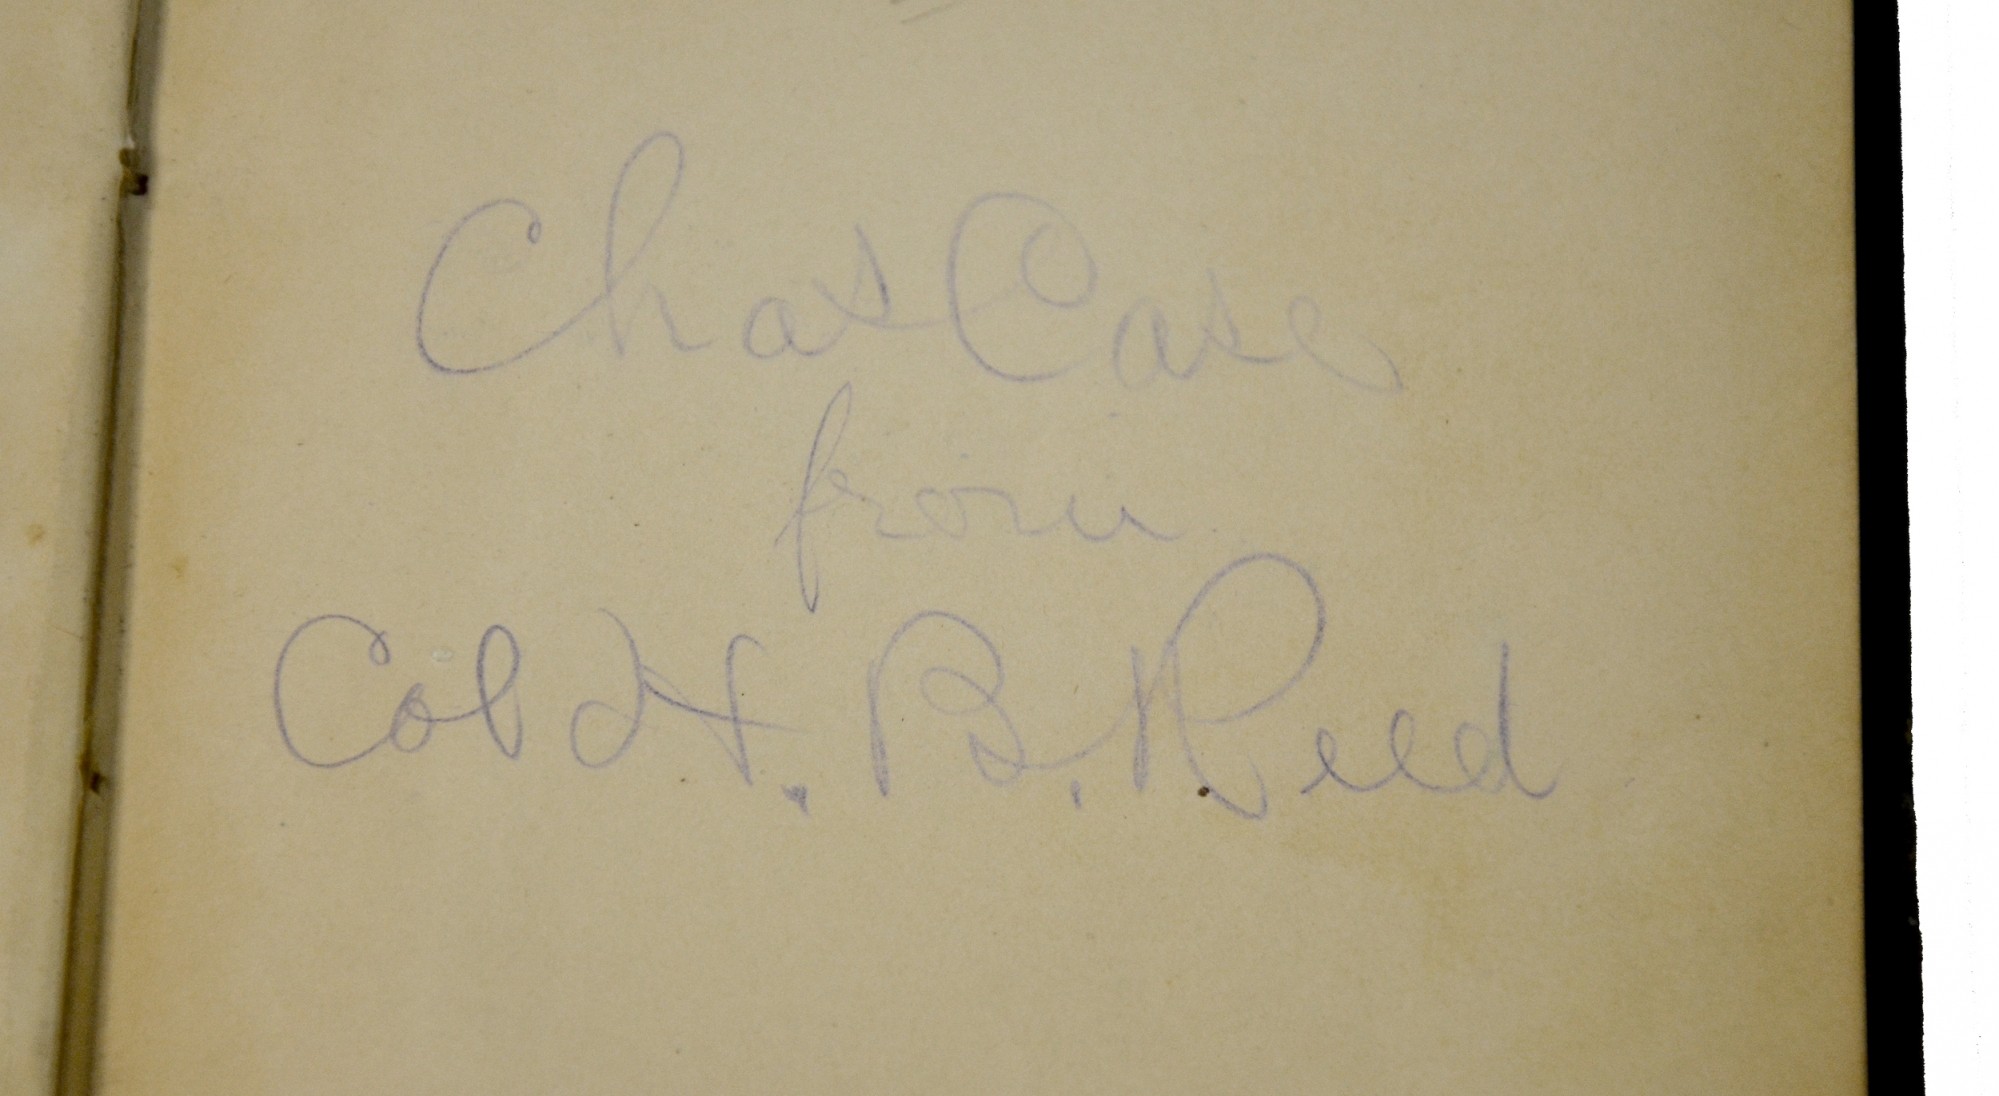 Chas Case
from
Col H. B. Reed